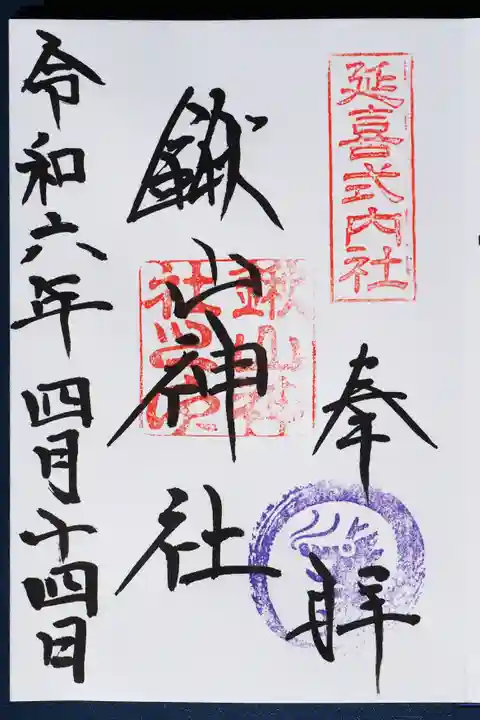 延喜式内社
奉拝
鍬山神社
鍬山神
社之印
令和六年 四月十四日